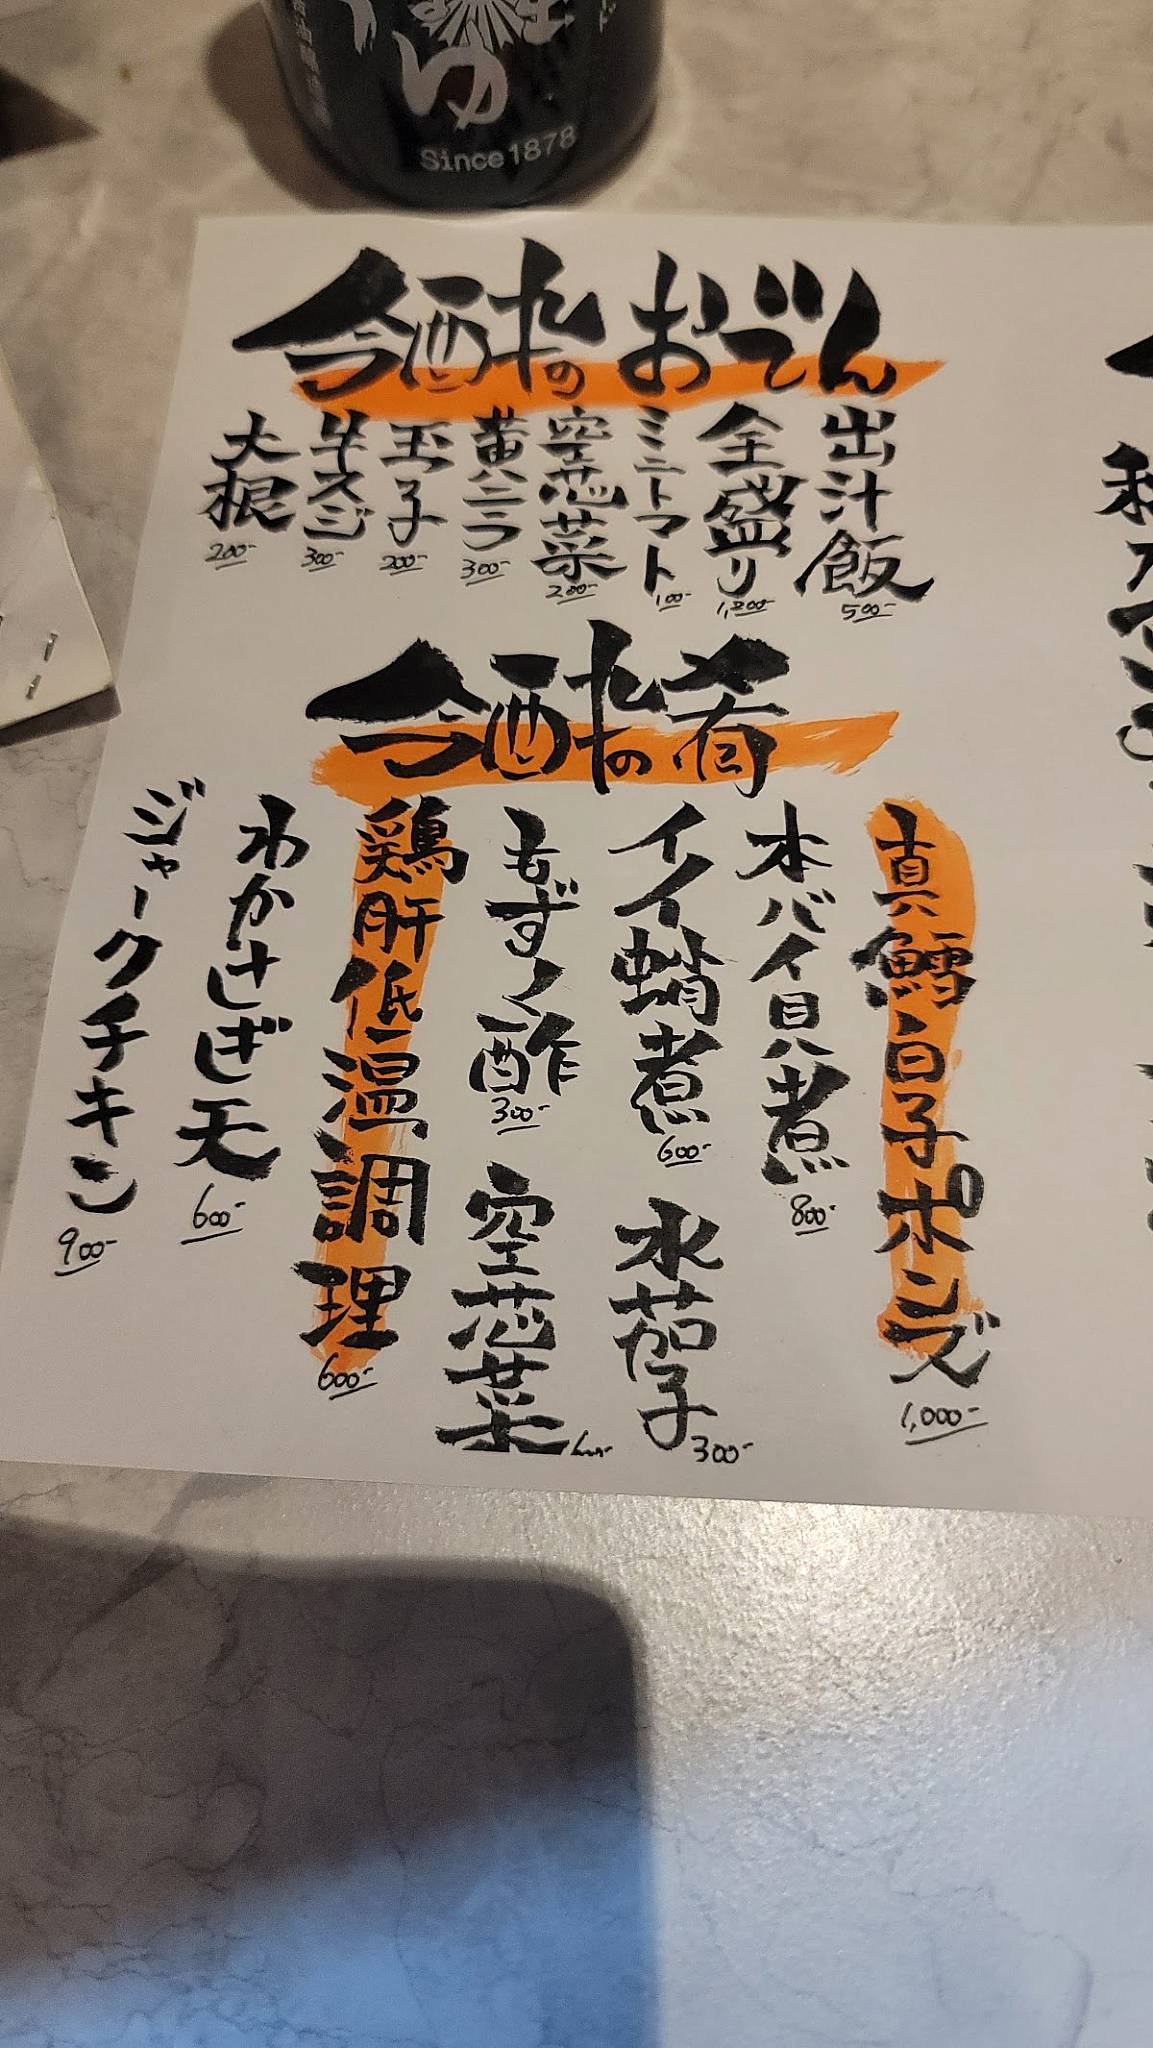 ゆ
Since1878
今酔のおでん
出汁飯 500-
全盛り 1,800-
ミニトマト 100-
空芯菜 200-
黄ニラ 300-
玉子 200-
牛スジ 300-
大根 200-
今酔の肴
真鱈白子ポンズ 1,000-
本バイ貝煮 800-
イイ蛸煮 600-
水茄子 300-
もずく酢 300-
空芯菜
鶏肝低温調理 600-
わかさぎ天 600-
ジャークチキン 900-